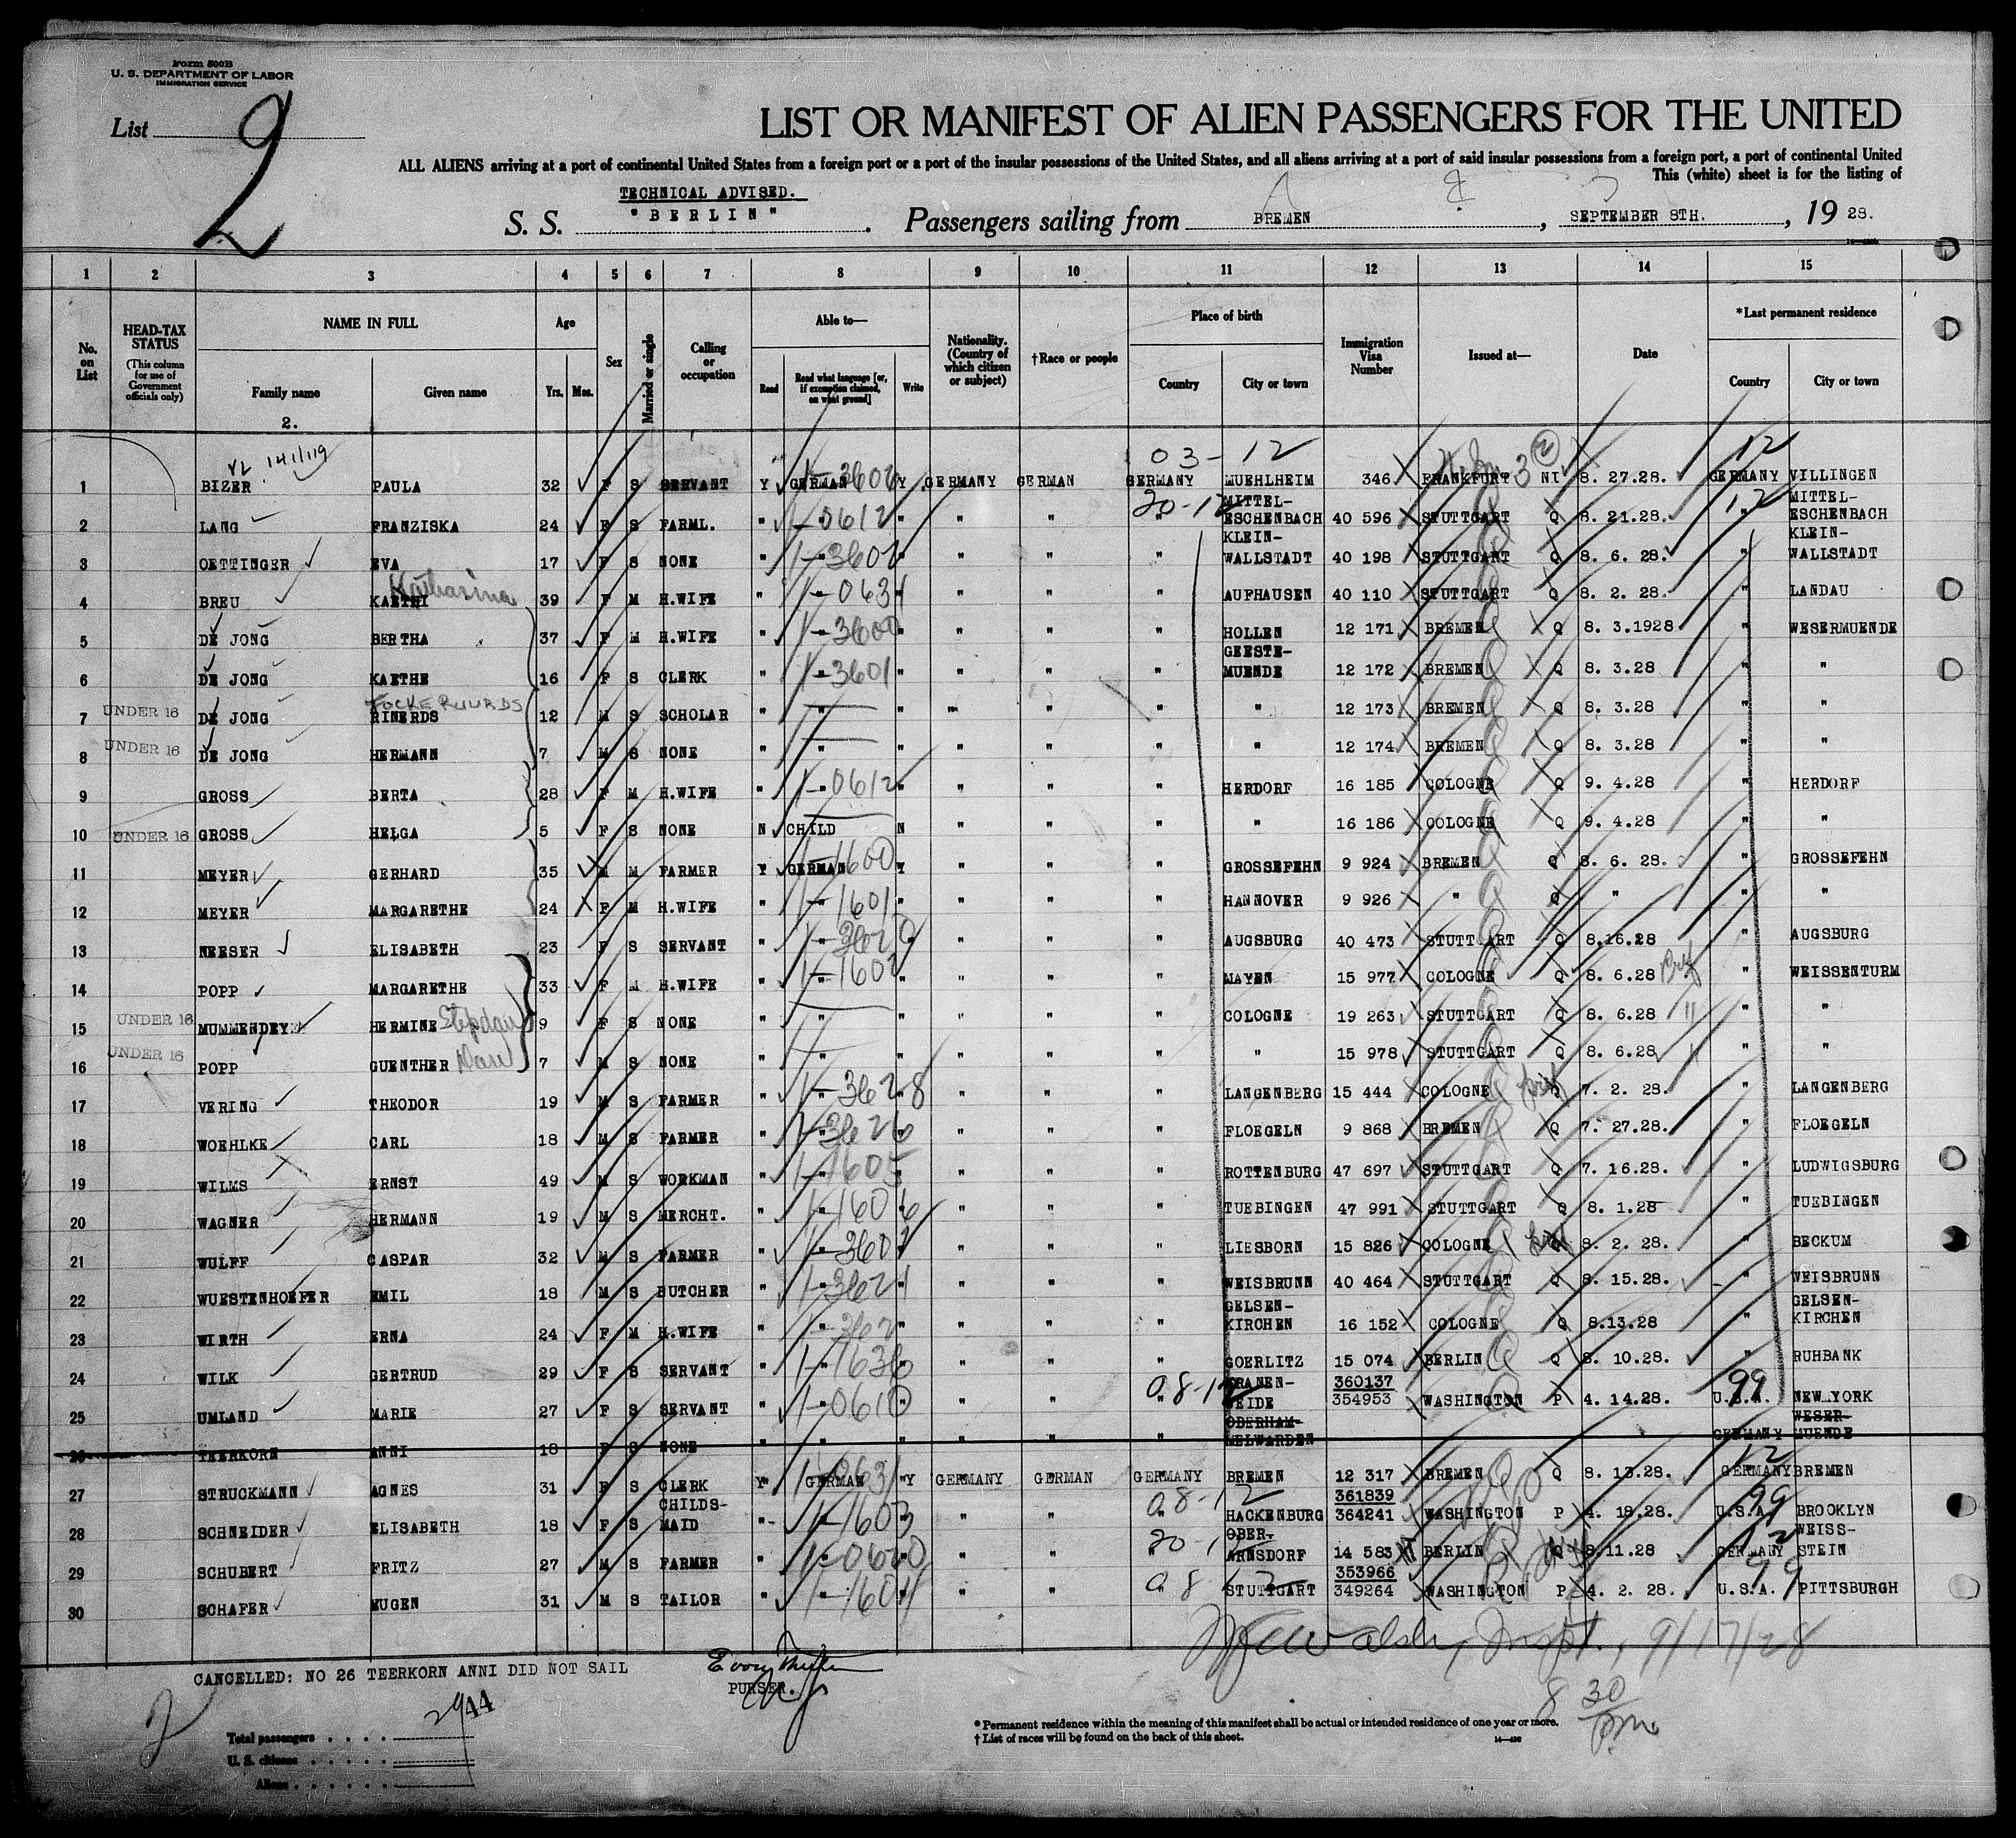 Form 500B
U. S. DEPARTMENT OF LABOR
IMMIGRATION SERVICE
List 2
LIST OR MANIFEST OF ALIEN PASSENGERS FOR THE UNITED
ALL ALIENS arriving at a port of continental United States from a foreign port or a port of the insular possessions of the United States, and all aliens arriving at a port of said insular possessions from a foreign port, a port of continental United
This (white) sheet is for the listing of
TECHNICAL ADVISED.
S. S. "BERLIN". Passengers sailing from BREMEN, SEPTEMBER 8TH., 1928.
1 2 3 4 5 6 7 8 9 10 11 12 13 14 15
No. on List
HEAD-TAX STATUS (This column for use of Government officials only)
NAME IN FULL Family name Given name
Age Yrs. Mos.
Sex
Married or single
Calling or occupation
Able to— Read Read what language [or, if exemption claimed, on what ground] Write
Nationality. (Country of which citizen or subject)
†Race or people
Place of birth Country City or town
Immigration Visa Number
Issued at—
Date
*Last permanent residence Country City or town
2.
141/119
03-12 12
1 BIZER PAULA 32 F S SERVANT Y GERMAN Y GERMANY GERMAN GERMANY MUEHLHEIM 346 FRANKFURT 3 NI 8. 27.28. GERMANY VILLINGEN
2 LANG FRANZISKA 24 F S FARML. " " 0612 " " " 20-12 " MITTEL-ESCHENBACH 40 596 STUTTGART Q 8. 21.28. 12 " MITTEL-ESCHENBACH
3 OETTINGER EVA 17 F S NONE " " " " " " KLEIN-WALLSTADT 40 198 STUTTGART Q 8. 6. 28. " KLEIN-WALLSTADT
4 BREU KAETHI Katharina 39 F M H.WIFE " " " " " " AUFHAUSEN 40 110 STUTTGART Q 8. 2. 28. " LANDAU
5 DE JONG BERTHA 37 F M H.WIFE " " 3600 " " " " HOLLEN 12 171 BREMEN Q 8. 3.1928 " WESERMUENDE
6 DE JONG KAETHE 16 F S CLERK " " 3601 " " " " GEESTE-MUENDE 12 172 BREMEN Q 8. 3.28 " "
7 UNDER 16 DE JONG RINERDS 12 M S SCHOLAR " " " " " " " 12 173 BREMEN Q 8. 3.28 " "
8 UNDER 16 DE JONG HERMANN 7 M S NONE " " " " " " " 12 174 BREMEN Q 8. 3.28 " "
9 GROSS BERTA 28 F M H.WIFE " " 0612 " " " " HERDORF 16 185 COLOGNE Q 9. 4.28 " HERDORF
10 UNDER 16 GROSS HELGA 5 F S NONE N CHILD N " " " " 16 186 COLOGNE Q 9. 4.28 " "
11 MEYER GERHARD 35 M M FARMER Y GERMAN 1600 Y " " " GROSSEFEHN 9 924 BREMEN Q 8. 6. 28. " GROSSEFEHN
12 MEYER MARGARETHE 24 F M H.WIFE " " 1601 " " " " HANNOVER 9 926 " Q " " "
13 NEESER ELISABETH 23 F S SERVANT " " " " " " AUGSBURG 40 473 STUTTGART Q 8.16.28 " AUGSBURG
14 POPP MARGARETHE 33 F M H.WIFE " " " " " " MAYEN 15 977 COLOGNE 8. 6.28 " WEISSENTURM
15 UNDER 16 MUMMENDEY HERMINE 9 F S NONE " " " " " " COLOGNE 19 263 STUTTGART Q 8. 6.28 " "
16 UNDER 16 POPP GUENTHER 7 M S NONE " " " " " " " 15 978 STUTTGART Q 8. 6.28 " "
17 VERING THEODOR 19 M S FARMER " " 3628 " " " " LANGENBERG 15 444 COLOGNE 7. 2. 28. " LANGENBERG
18 WOEHLKE CARL 18 M S FARMER " " 3626 " " " " FLOEGELN 9 868 BREMEN Q 7. 27.28. " FLOEGELN
19 WILMS ERNST 49 M S WORKMAN " " 1605 " " " " ROTTENBURG 47 697 STUTTGART Q 7. 16.28. " LUDWIGSBURG
20 WAGNER HERMANN 19 M S MERCHT. " " 1606 " " " " TUEBINGEN 47 991 STUTTGART Q 8. 1.28 " TUEBINGEN
21 WULFF CASPAR 32 M S FARMER " " " " " " LIESBORN 15 826 COLOGNE 8. 2. 28. " BECKUM
22 WUESTENHOEFER EMIL 18 M S BUTCHER " " 3621 " " " " WEISBRUNN 40 464 STUTTGART Q 8. 15.28. " WEISBRUNN
23 WIRTH ERNA 24 F M H.WIFE " " " " " " GELSEN-KIRCHEN 16 152 COLOGNE Q 8.13.28 " GELSEN-KIRCHEN
24 WILK GERTRUD 29 F S SERVANT " " 1636 " " " " GOERLITZ 15 074 BERLIN Q 8. 10.28. " RUHBANK
25 UMLAND MARIE 27 F S SERVANT " " 0610 " " " 08-12 " 360137 354953 WASHINGTON P 4. 14.28. 99 U.S.A. NEW YORK
26 TEERKORN ANNI 18 F S NONE " " " " " " ODERHAM-MELWARDEN GERMANY WESER-MUENDE
27 STRUCKMANN AGNES 31 F S CLERK Y" GERMAN "Y GERMANY GERMAN GERMANY BREMEN 12 317 BREMEN Q 8. 13.28. 12 GERMANY BREMEN
28 SCHNEIDER ELISABETH 18 F S CHILDS-MAID " " 1603 " " " 08-12 " HACKENBURG 361839 364241 WASHINGTON P 4. 18.28. 99 U.S.A. BROOKLYN
29 SCHUBERT FRITZ 27 M S FARMER " " " " " 20-12 " OBER-ARNSDORF 14 583 BERLIN Q 8.11.28 12 GERMANY WEISS-STEIN
30 SCHAFER EUGEN 31 M S TAILOR " " 1604 " " " 08-12 " STUTTGART 353966 349264 WASHINGTON P 4. 2. 28. 99 U.S.A. PITTSBURGH
Walsh, Inspt., 9/17/28
CANCELLED: NO 26 TEERKORN ANNI DID NOT SAIL
PURSER.
8 30 pm
2
29 44
Total passengers
U. S. citizens
Aliens
* Permanent residence within the meaning of this manifest shall be actual or intended residence of one year or more.
† List of races will be found on the back of this sheet.